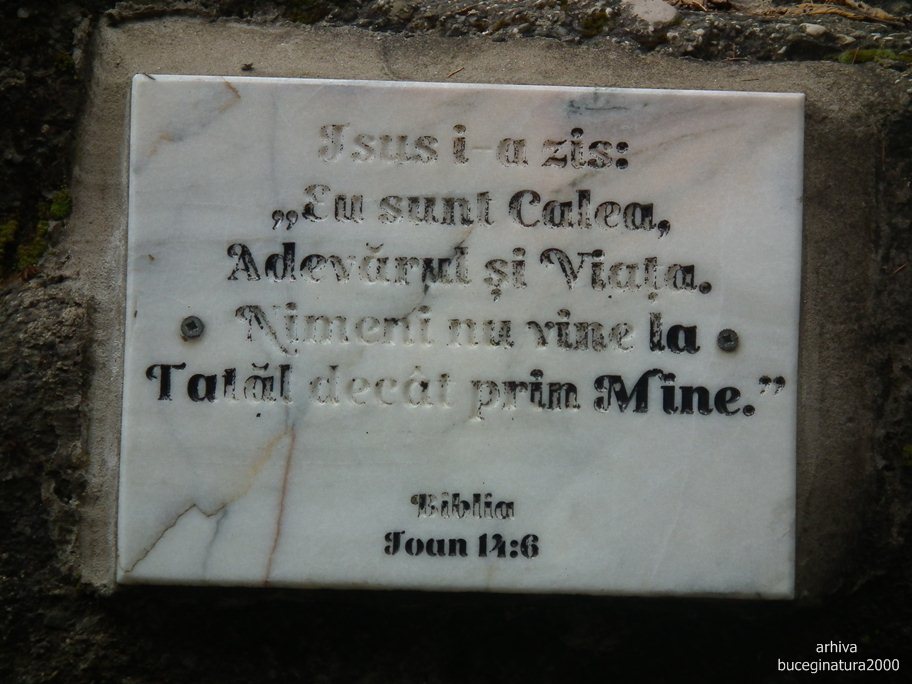 Isus i-a zis:
„Eu sunt Calea,
Adevărul și Viața.
Nimeni nu vine la
Tatăl decât prin Mine.”
Biblia
Ioan 14:6
arhiva
buceginatura2000